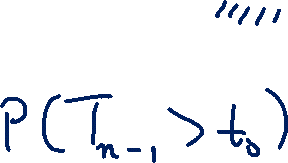 P(T_{n-1} > t_0)